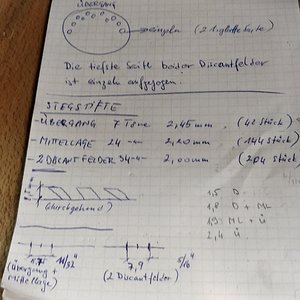 ÜBERGANG
einzeln (21. glatte Saite)
Die tiefste Saite beider Discantfelder
ist einzeln aufgezogen.
STEGSTIFTE
-ÜBERGANG 7 Töne 2,45mm, (42 Stück)
-MITTELLAGE 24 -"- 2,20mm (144 Stück)
-2 DISCANTFELDER 34 -"- 2,00mm (204 Stück)
(durchgehend)
1,5 D
1,8 D + ML
1,9 ML + Ü
2,4 Ü
11/32"
(Übergang +
Mittellage)
7,9 5/16"
(2 Discantfelder)